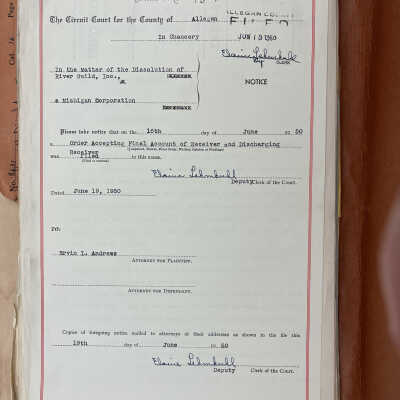 The Circuit Court for the County of Allegan
ALLEGAN COUNTY
FILED
In Chancery
JUN 19 1950
Elaine Lehmkuhl
CLERK
In the Matter of the Dissolution of
River Guild, Inc.,
a Michigan Corporation
NOTICE
Please take notice that on the 16th day of June 19 50
Order Accepting Final Account of Receiver and Discharging
Receiver
was filed in this cause.
Elaine Lehmkuhl
Deputy Clerk of the Court.
Dated June 19, 1950
To:
Ervin L. Andrews
ATTORNEY FOR PLAINTIFF.
ATTORNEY FOR DEFENDANT.
Copies of foregoing notice mailed to attorneys at their addresses as shown in the file this
19th day of June 19 50
Elaine Lehmkuhl
Deputy Clerk of the Court.